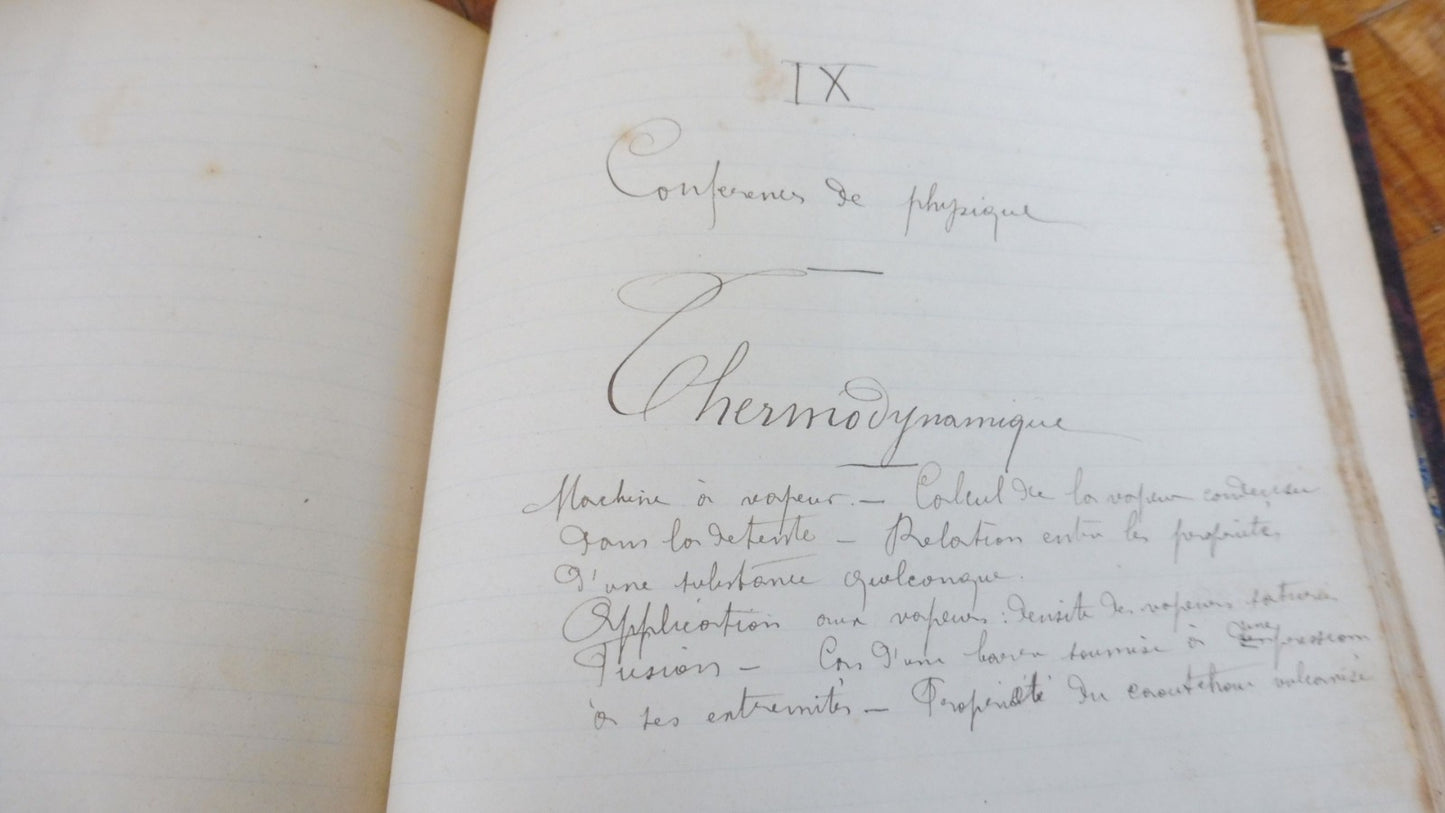 IX
Conférences de physique
Thermodynamique
Machine à vapeur. — Calcul de la vapeur condensée
dans la detente — Relation entre les propriétés
d'une substance quelconque.
Application aux vapeurs : densité des vapeurs saturées
Fusion — Cas d'une barre soumise à une pression
à ses extremités — Propriété du caoutchouc vulcanisé